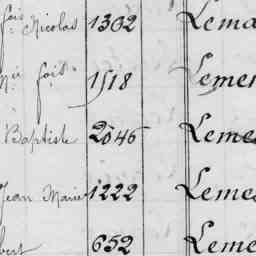 fois Nicolas 1302 Lema
Mie fois 1518 Lemer
Baptiste 2046 Leme
Jean Marie 1222 Leme
bert 652 Leme